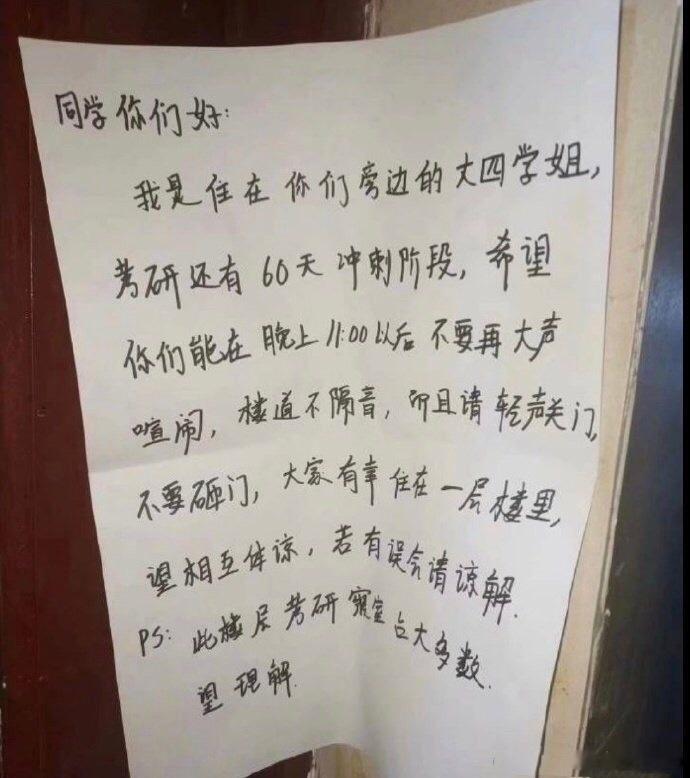 同学你们好:
我是住在你们旁边的大四学姐,
考研还有60天冲刺阶段,希望
你们能在晚上11:00以后不要再大声
喧闹,楼道不隔音,而且请轻声关门,
不要砸门,大家有幸住在一层楼里,
望相互体谅,若有误会请谅解.
PS:此楼层考研寝室占大多数.
望理解.